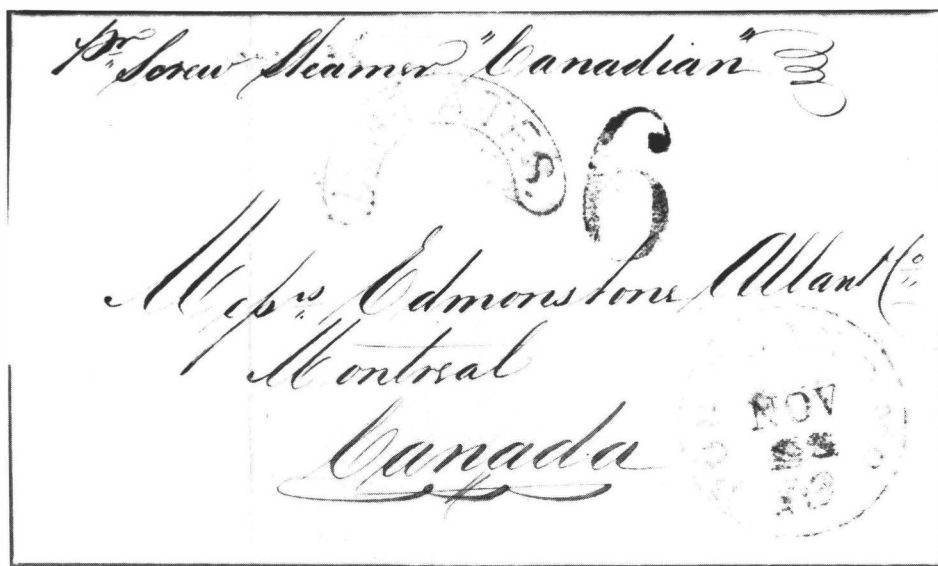 pr Screw Steamer "Canadian"
STATES.
6
Messrs Edmonstone Allan & Co
Montreal
Canada
NOV